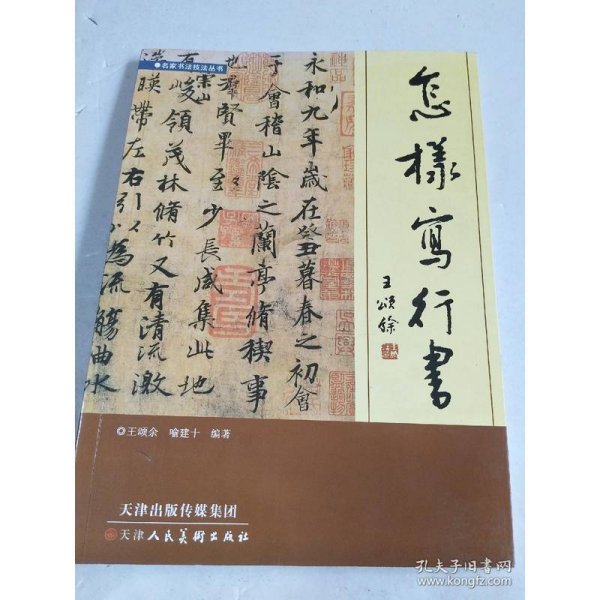 ◉名家书法技法丛书
怎樣寫行書
王頌餘
永和九年歲在癸丑暮春之初會
于會稽山陰之蘭亭脩稧事
也羣賢畢至少長咸集此地
有崇山峻領茂林脩竹又有清流激
湍暎帶左右引以為流觴曲水
◎王颂余 喻建十 编著
天津出版传媒集团
天津人民美術出版社
孔夫子旧书网
www.kongfz.com